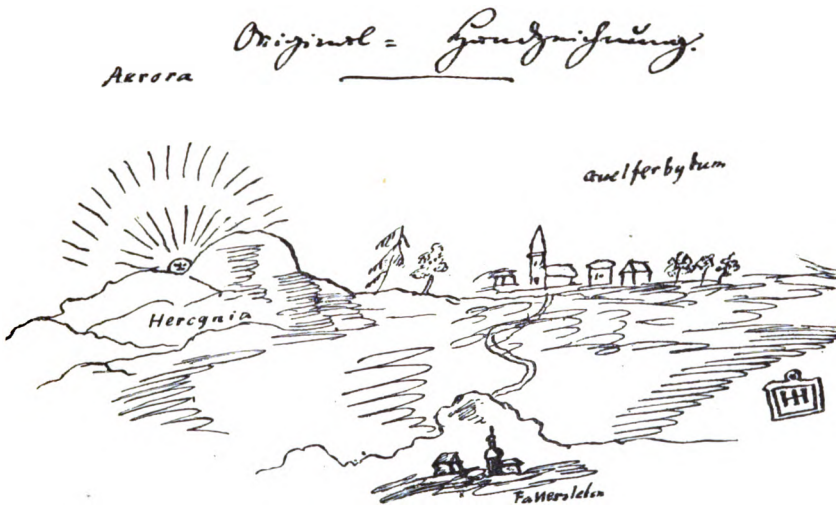 Original = Handzeichnung.
Aurora
Guelferbytum
Hercynia
HH
Fallersleben